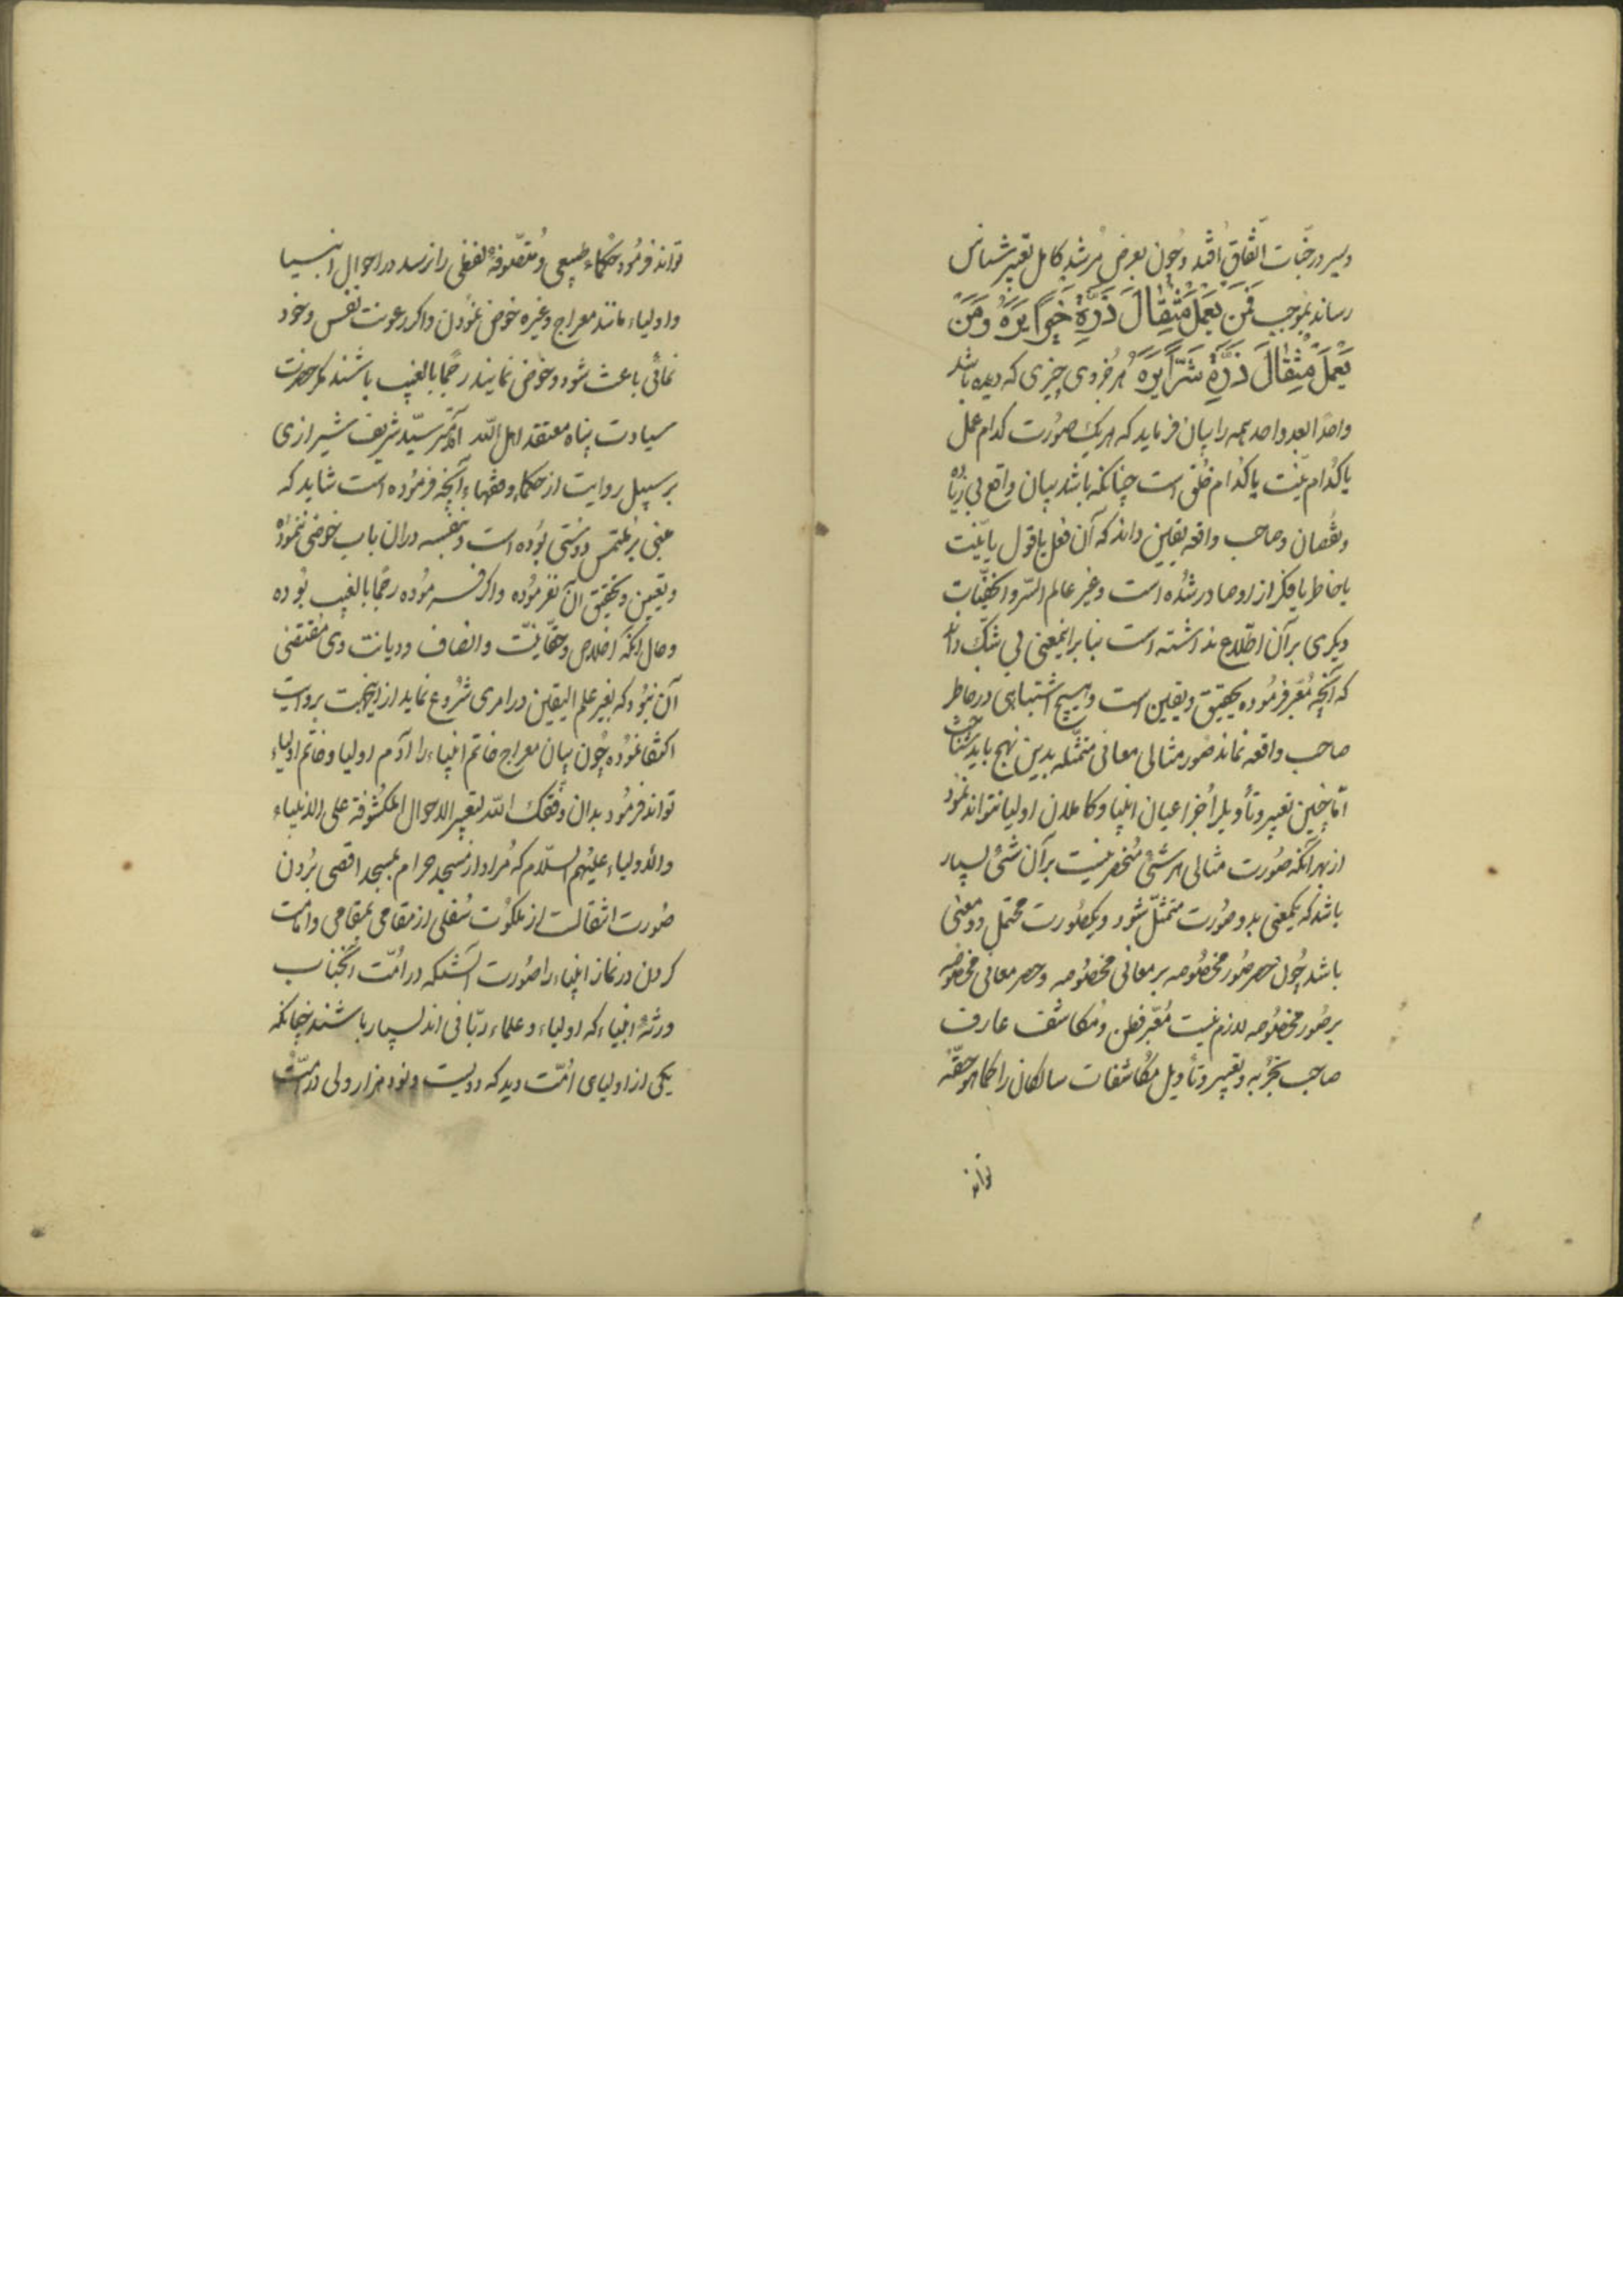 وسیر درجّنات اتّفاق اُفتد وچون بعرض مُرشد کامل تعبیر شناس
رساند بمُوجب فَمَن یَعمَل مِثقَالَ ذَرَّةٍ خَیرًا یَرَهُ وَمَن
یَعمَل مِثقَالَ ذَرَّةٍ شَرًّا یَرَهُ هر فردی چیزی که دیده باشد
واحدًا بعد واحد همه را بیان فرماید که هریک صورت کدام عمل
یا کُدام نیّت یا کُدام خُلقی است چنانکه باشد بیان واقع بی زیاده
ونقصان وصاحب واقعه بیقین داند که آن فعل یا قول یا نیّت
یا خاطر یا فکر از او صادر شُده است وغیر عالم السّر والخفیّات
دیکری برآن اطّلاع نداشته است بنا براینمعنی بی شکّ داند
که آنچه مُعبّر فرمُوده بتحقیق ویقین است وهیچ اشتباهی درخاطر
صاحب واقعه نماند صُور مثالی معانی متمثّله بدین نهج باید شناخت
امّا چنین تعبیر وتأویل را جُز اعیان انبیا وکاملان اولیا نتواند نمُود
از بهر آنکه صُورت مثالی هر شئ مُنحصر نیست برآن شئ بسیار
باشد که یکمعنی بدو صُورت متمثّل شود ویکصُورت محتمل دو معنی
باشد چُون حصر صُور مخصُوصه بر معانی مخصُوصه وحصر معانی مخصُوصه
بر صُور مخصُوصه لازم نیست مُعبّر فطن ومُکاشف عارف
صاحب تجرُبه وتعبیر وتأویل مکاشفات سالکان را کما هو حقّهُ
تواند
تواند فرمُود حُکماء طبیعی ومُتصّلوفهٔ لفظی را نرسد در احوال انبیا
واولیاء مانند معراج وغیره خوض نمُودن واکر رعونت نفس وخود
نمائی باعث شود وخوض نمایند رجمًا بالغیب باشند مکر حضرت
سیادت پناه معتقد اهل الله امیر سیّد شریف شیرازی
بر سبیل روایت از حکماء وفقهاء آنچه فرمُوده است شاید که
مبنی بر مُلتمس دوستی بوُده است وبنفسه دران باب خوضی ننمُوده
وتعیین وتحقیق آن نفرموُده واکر فرموُده رجمًا بالغیب بوُده
وحال آنکه اخلاص وحقّانیّت وانصاف ودیانت وی مُقتضی
آن نبوُد که بغیر علم الیقین در امری شُروع نماید از اینجهت بروایت
اکتفا نمُوده چُون بیان معراج خاتم انبیاء را آدم اولیا وخاتم اولیاء
تواند فرمُود بدان وفّقک الله لتعبیر الاحوال المکشُوفة علی الانبیاء
والاولیاء علیهم السلام که مُراد از مسجد حرام بمسجد اقصی بُردن
صُورت انتقالست از ملکوُت سُفلی از مقامی بمقامی وامامت
کردن در نماز انبیاء را صُورت آنستکه در امّت آنجناب
ورثهٔ انبیاء که اولیاء وعلماء ربّانی اند بسیار باشند چنانکه
یکی از اولیای امُّت دید که دویست ونود هزار ولی در امّت